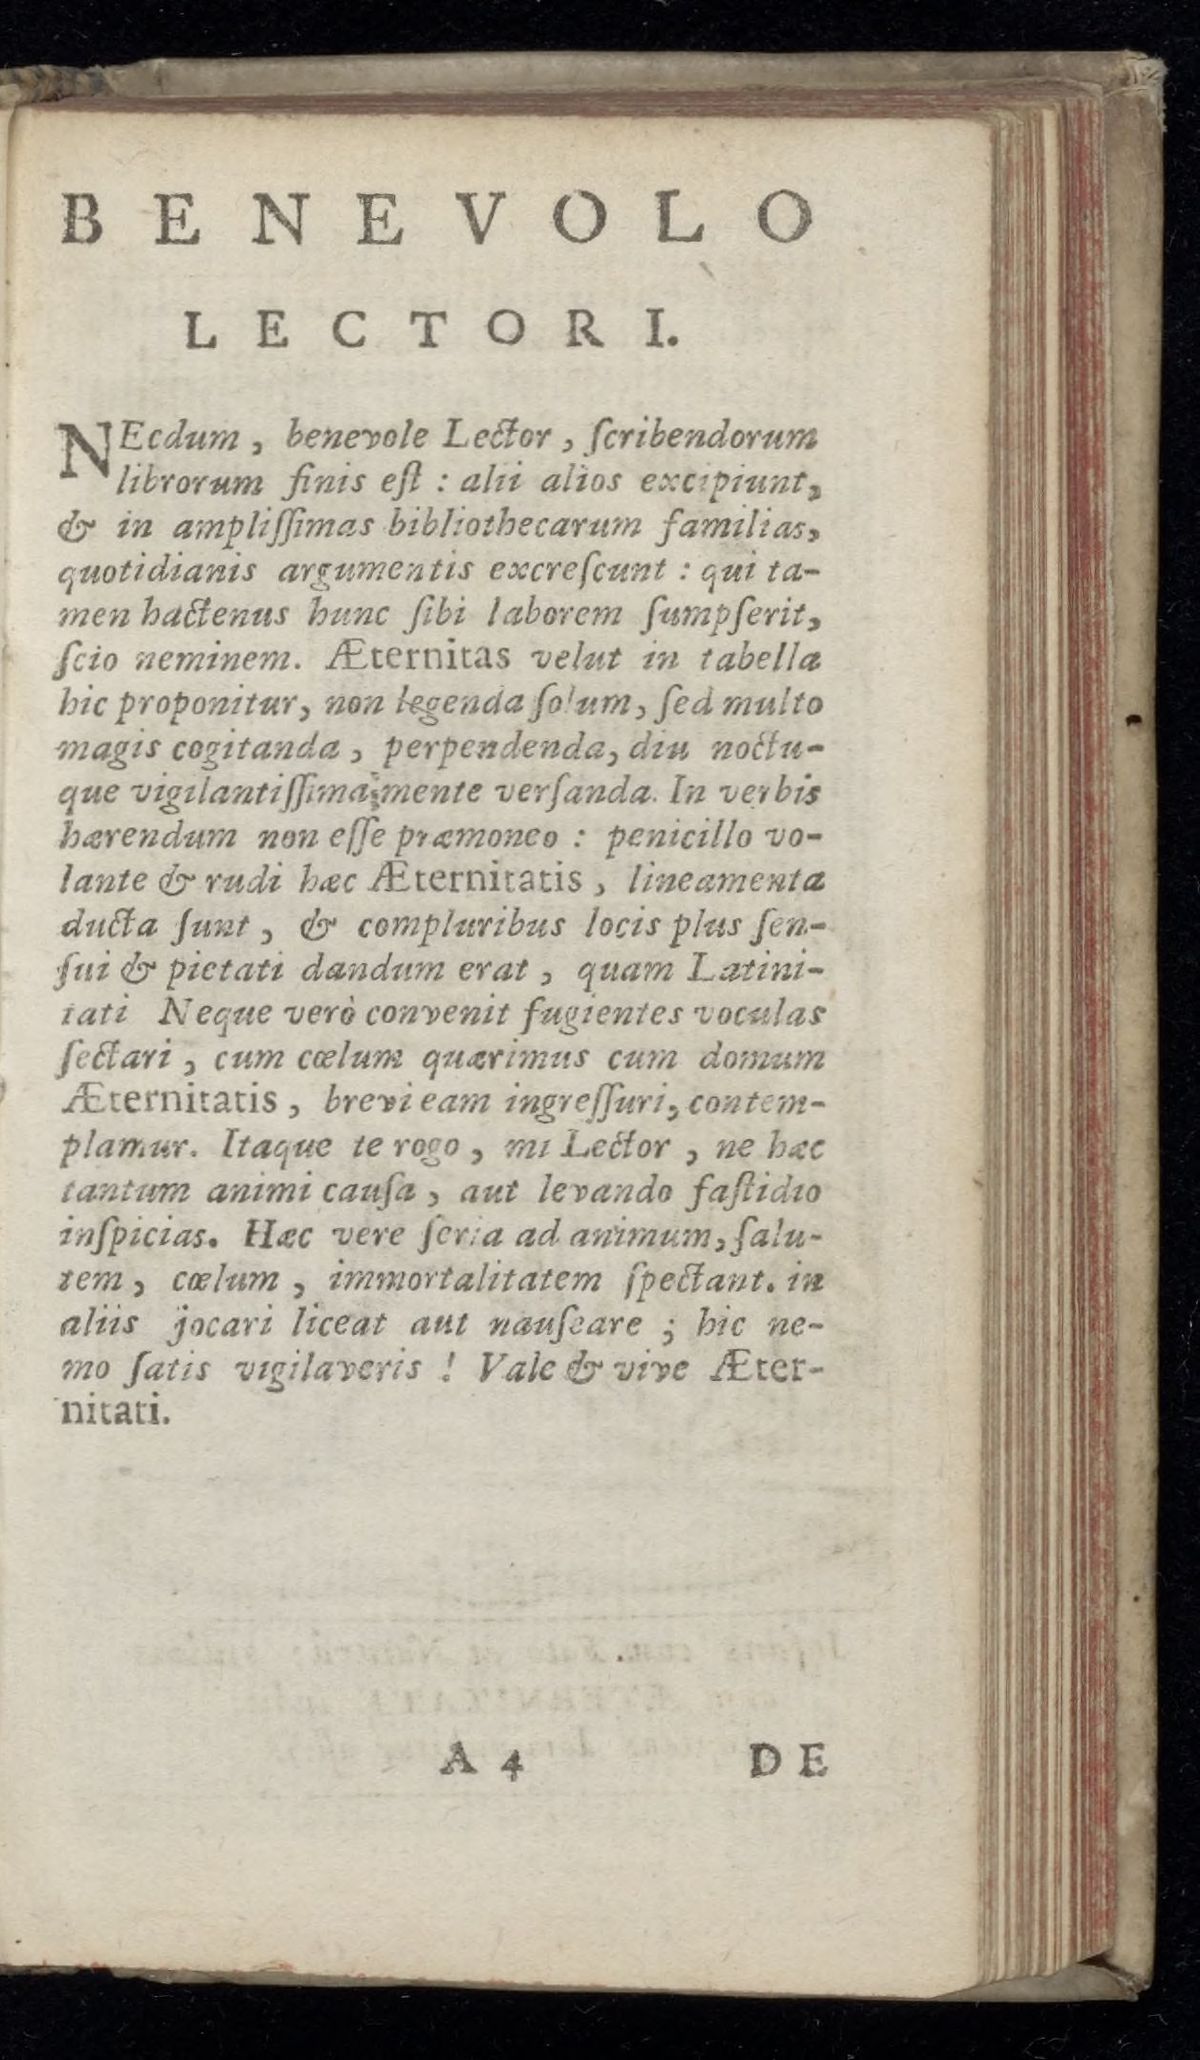 BENEVOLO
LECTORI.
NEcdum, benevole Lector, ſcribendorum
librorum finis eſt : alii alios excipiunt,
& in ampliſſimas bibliothecarum familias,
quotidianis argumentis excreſcunt : qui ta-
men hactenus hunc ſibi laborem ſumpſerit,
ſcio neminem. Æternitas velut in tabella
hic proponitur, non legenda ſolum, ſed multo
magis cogitanda, perpendenda, diu noctu-
que vigilantiſſima mente verſanda. In verbis
hærendum non eſſe præmoneo : penicillo vo-
lante & rudi hæc Æternitatis, lineamenta
ducta ſunt, & compluribus locis plus ſen-
ſui & pietati dandum erat, quam Latini-
tati Neque verò convenit fugientes voculas
ſectari, cum cœlum quærimus cum domum
Æternitatis, brevi eam ingreſſuri, contem-
plamur. Itaque te rogo, mi Lector, ne hæc
tantum animi cauſa, aut levando faſtidio
inſpicias. Hæc vere ſeria ad animum, ſalu-
tem, cœlum, immortalitatem ſpectant. in
aliis jocari liceat aut nauſeare ; hic ne-
mo ſatis vigilaveris ! Vale & vive Æter-
nitati.
A 4 DE